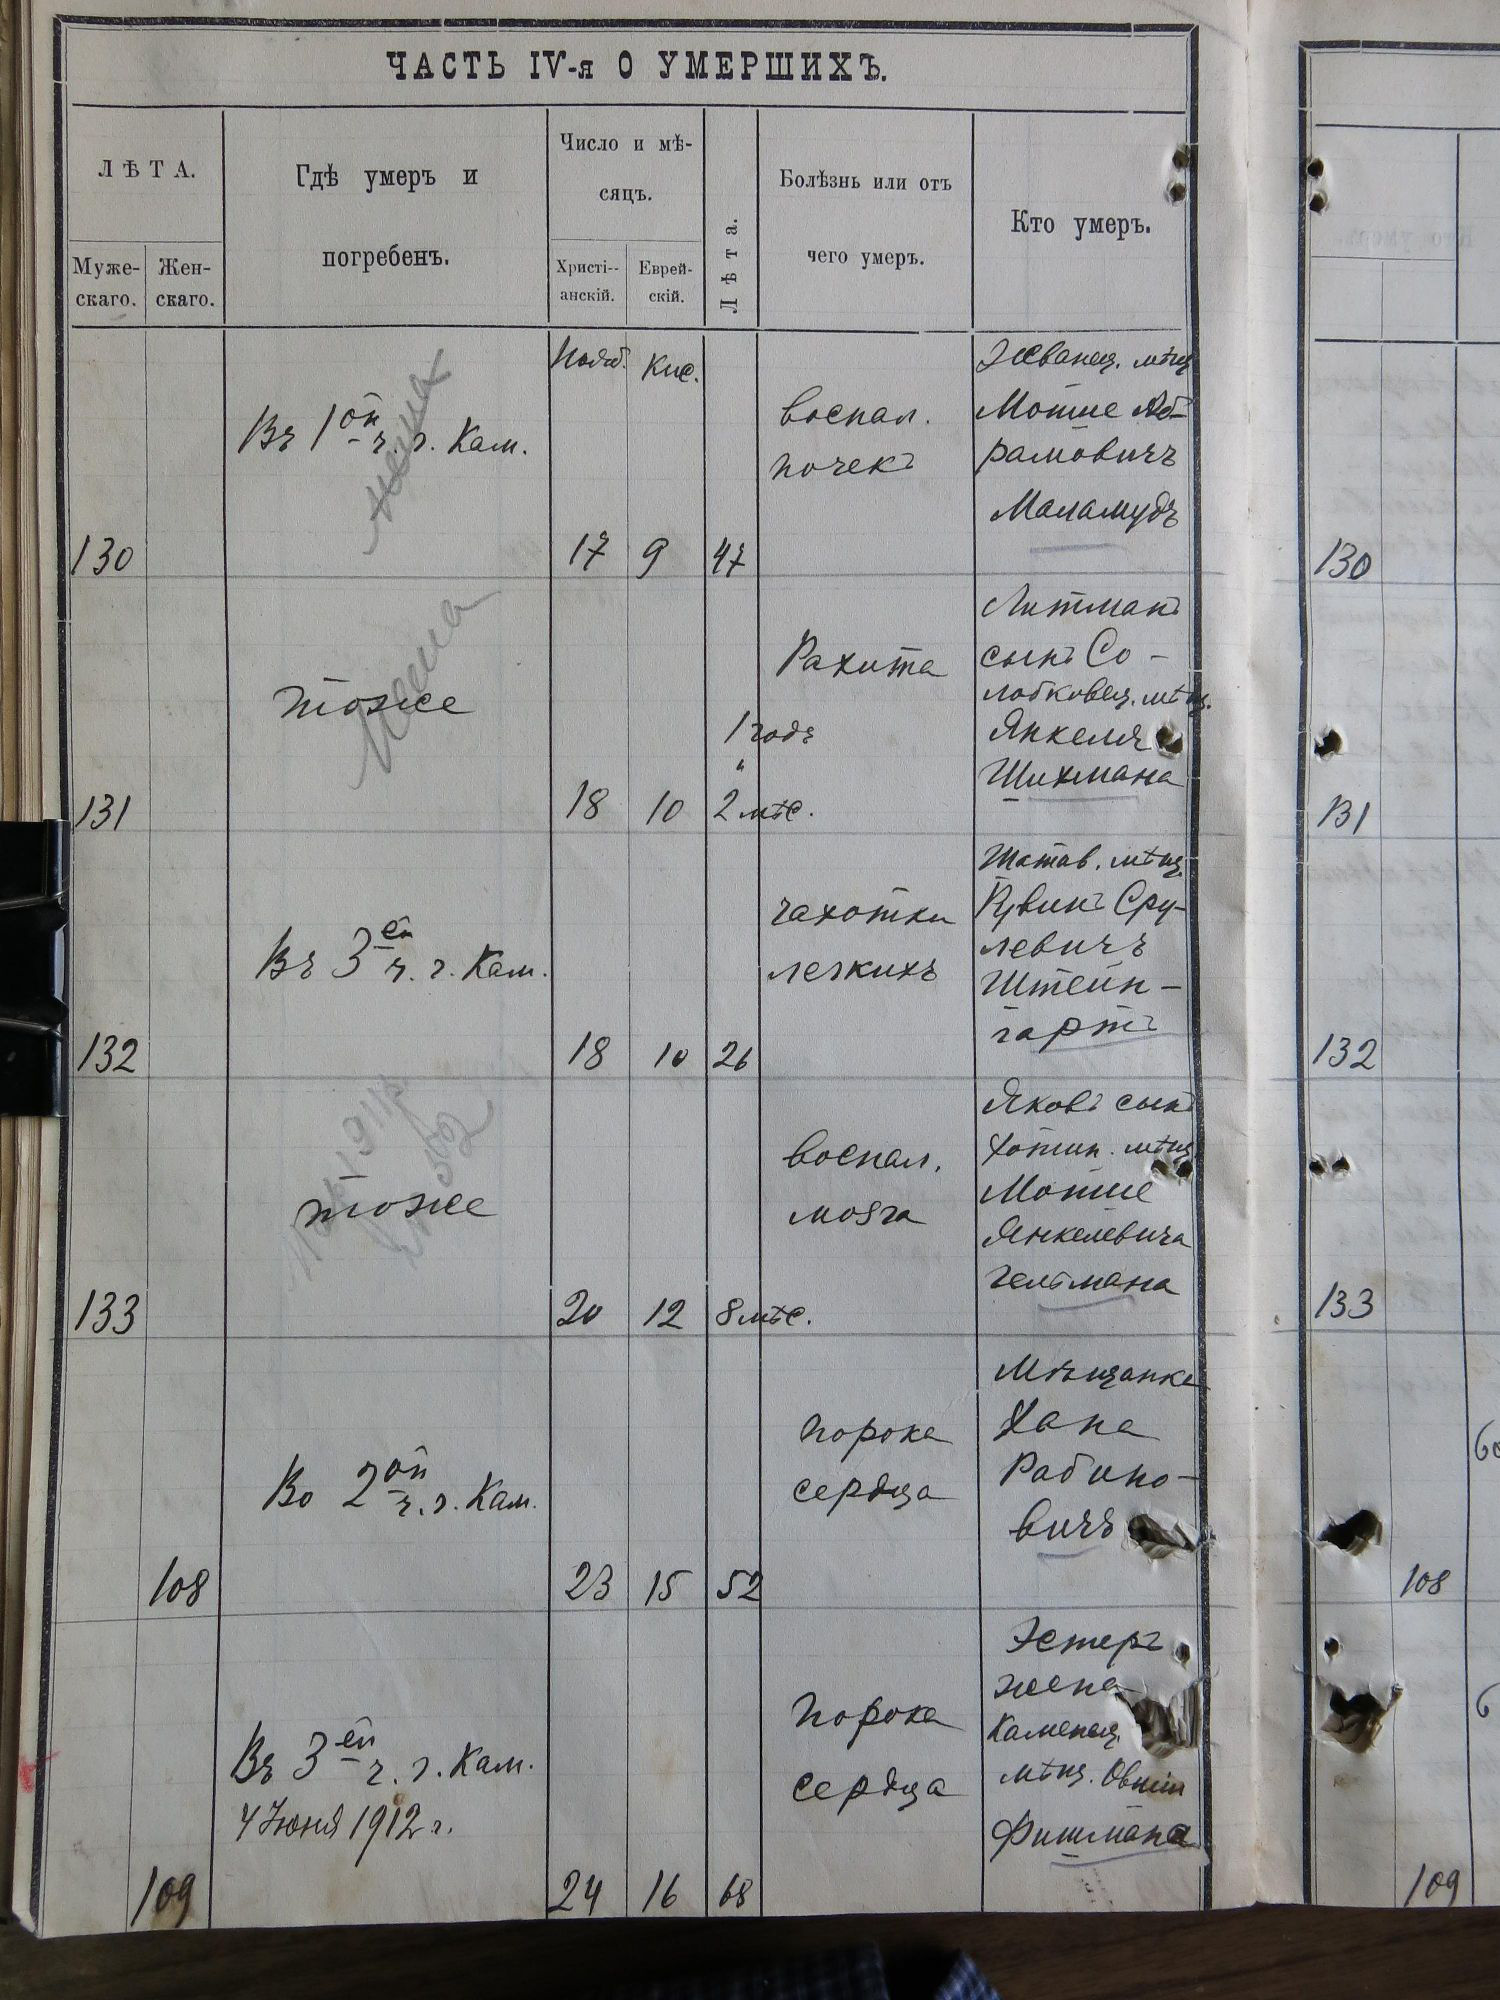 ЧАСТЬ IV-я О УМЕРШИХЪ.
ЛѢТА.
Муже-
скаго.
Жен-
скаго.
Гдѣ умеръ и
погребенъ.
Число и мѣ-
сяцъ.
Христі--
анскій.
Еврей-
скій.
Лѣта.
Болѣзнь или отъ
чего умеръ.
Кто умеръ.
130
Въ 1ой ч. г. Кам.
Нояб.
17
Кис.
9
47
воспал.
почекъ
Жванец. мѣщ
Мошке Аб-
рамовичъ
Маламудъ
130
131
тоже
18
10
1 годъ
"
2 мѣс.
Рахита
Литманъ
сынъ Со-
лобковец. мѣщ.
Янкеля
Шихмана
131
132
Въ 3ей ч. г. Кам.
18
10
26
чахотки
легкихъ
Шатав. мѣщ.
Рувинъ Сру-
левичъ
Штейн-
гартъ
132
133
тоже
20
12
8 мѣс.
воспал.
мозга
Яковъ сынъ
Хотин. мѣщ
Мошке
Янкелевича
Гельмана
133
108
Во 2ой ч. г. Кам.
23
15
52
порока
сердца
Мѣщанка
Хана
Рабино-
вичъ
108
109
Въ 3ей ч. г. Кам.
4 Іюня 1912 г.
24
16
68
порока
сердца
Эстеръ
жена
Каменец.
мѣщ. Овшии
Фишмана
109